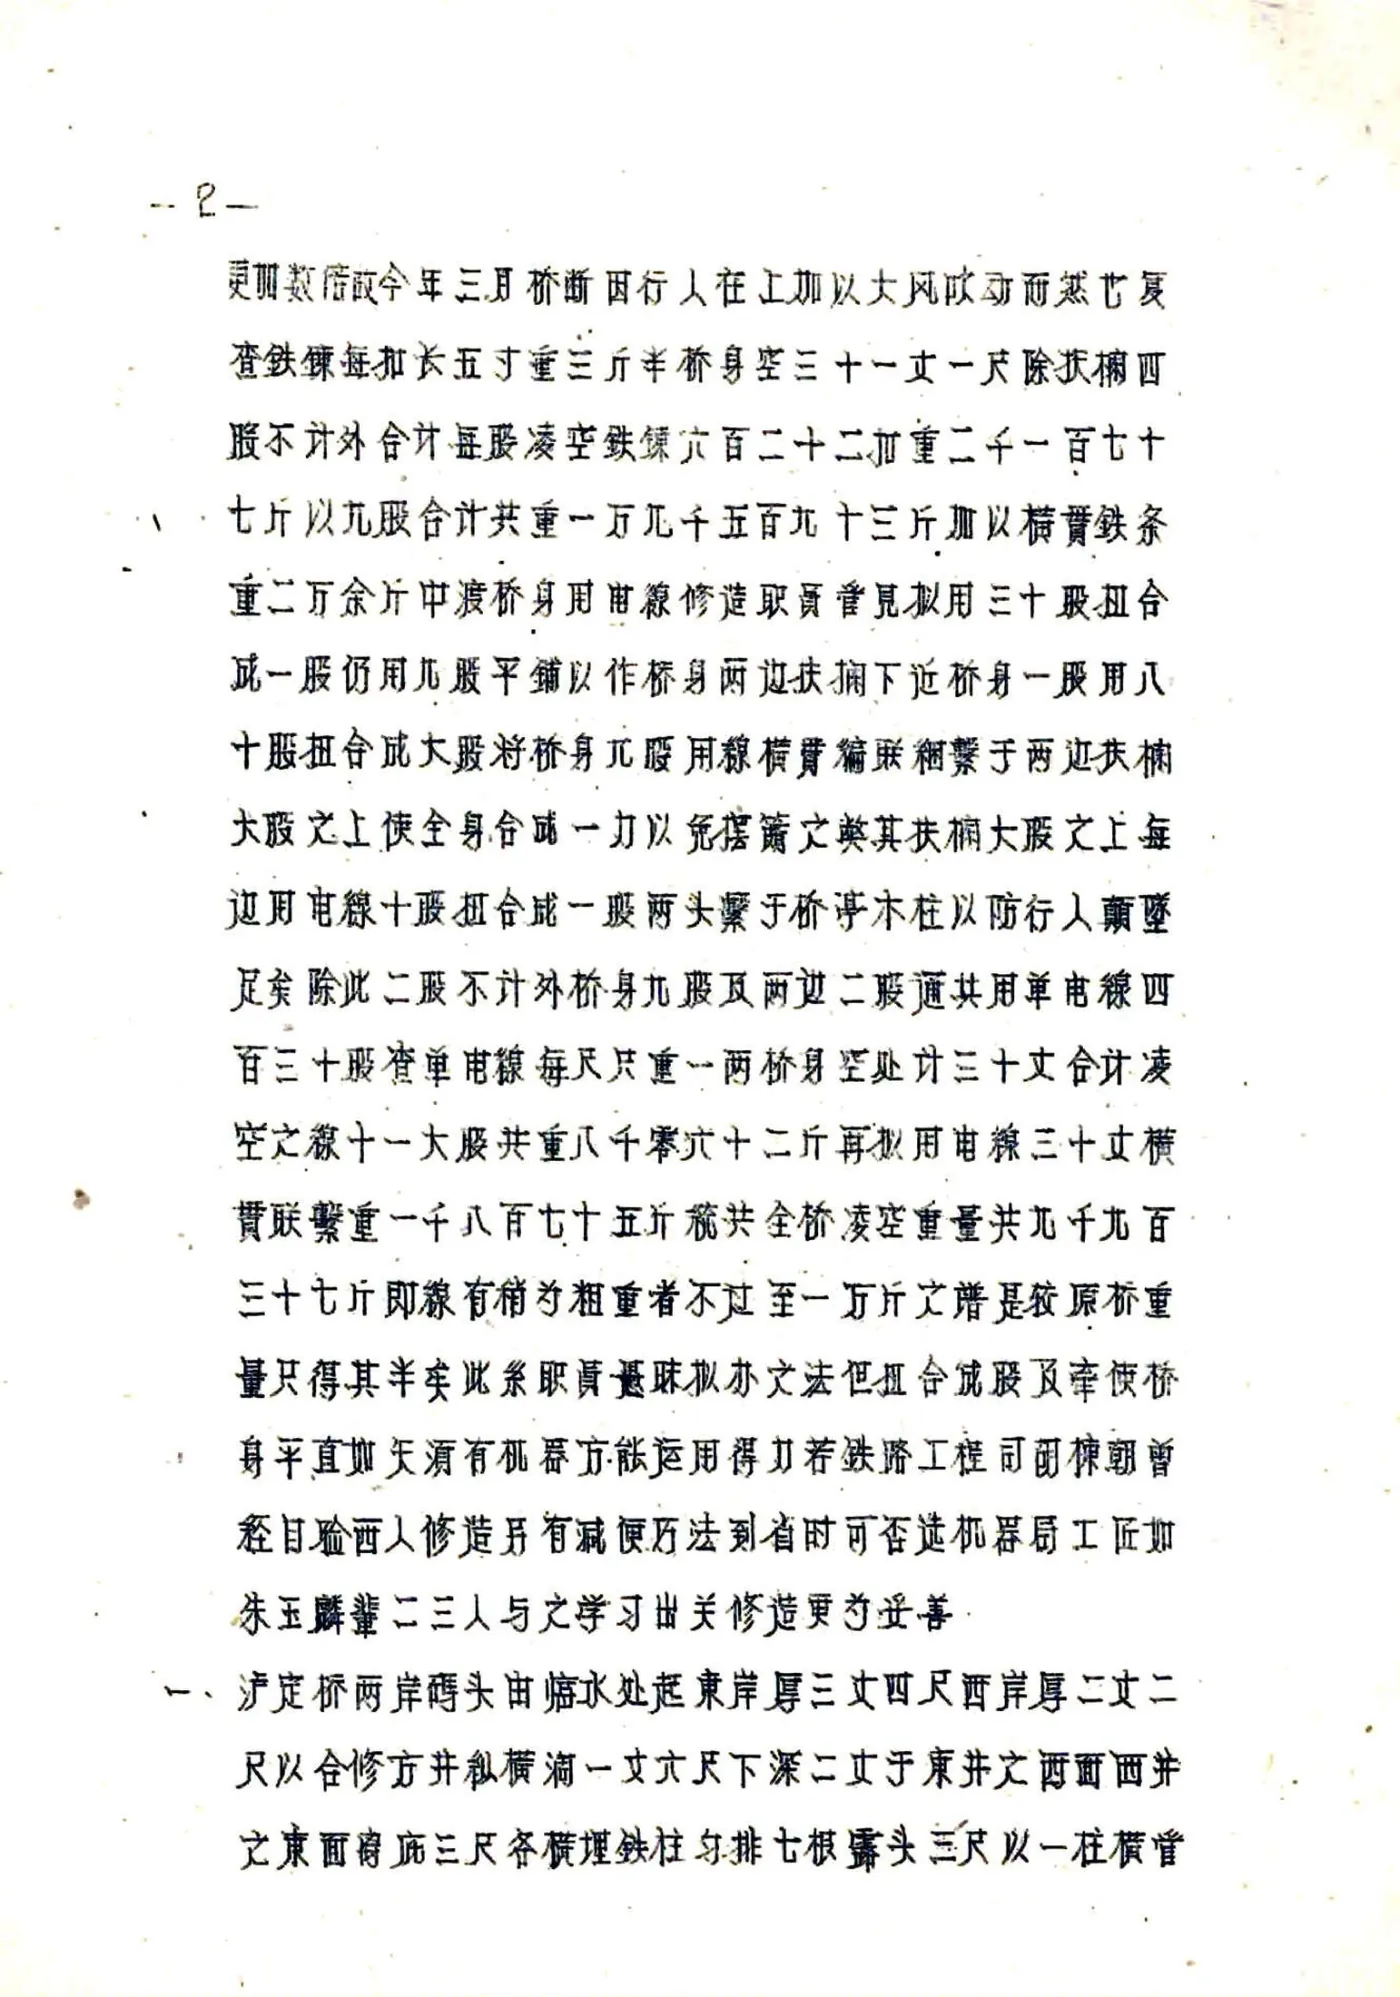 -2-
更加数倍故今年三月桥断因行人在上加以大风吹动而然也复
查鉄鍊每扣长五寸重三斤半桥身空三十一丈一尺除扶栏四
股不计外合计每股凌空鉄鍊六百二十二扣重二千一百七十
七斤以九股合计共重一万九千五百九十三斤加以横贯鉄条
重二万余斤中渡桥身用电線修造职员管見拟用三十股扭合
成一股仍用九股平鋪以作桥身两边扶栏下近桥身一股用八
十股扭合成大股将桥身九股用線横贯編联細繫于两边扶栏
大股之上使全身合成一力以免摆簸之弊其扶栏大股之上每
边用电線十股扭合成一股两头繫于桥亭木柱以防行人顛墜
足矣除此二股不计外桥身九股及两边二股通共用单电線四
百三十股查单电線每尺只重一两桥身空处计三十丈合计凌
空之線十一大股共重八千零六十二斤再拟用电線三十丈横
貫联繫重一千八百七十五斤統共全桥凌空重量共九千九百
三十七斤即線有稍为粗重者不过至一万斤之譜是较原桥重
量只得其半矣此系职員愚昧拟办之法但扭合成股及牵使桥
身平直如矢須有机器方能运用得力若鉄路工程司胡棟朝曾
经目验西人修造另有减便万法到省时可否选机器局工匠如
朱玉麟輩二三人与之学习出关修造更为妥善
一、泸定桥两岸碼头由临水处起東岸厚三丈四尺西岸厚二丈二
尺以合修方井縱横濶一丈六尺下深二丈于東井之西面西井
之東面离底三尺各横埋鉄柱匀排七根露头三尺以一柱横管